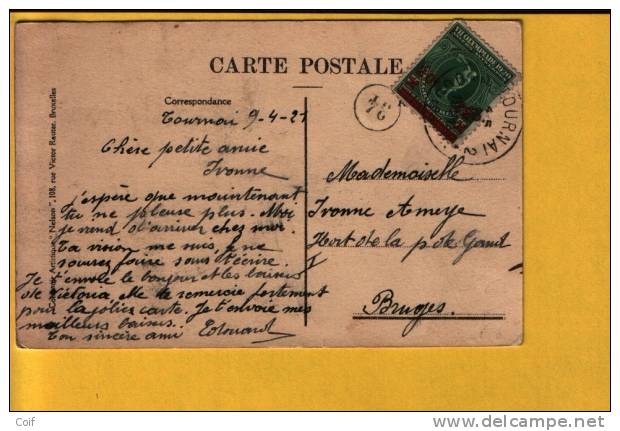 CARTE POSTALE
Correspondance
Tournai 9-4-21
Chère petite amie
Ivonne
J'espère que maintenant
tu ne pleure plus. Moi
je vend d'arriver chez moi.
Ta vision me suis, je ne
saurez faire sous t'écrire.
Je t'envoie le bonjour et les baisers
de Victoria. Me de remercie fortement
pour la jolie carte. Je t'envoie mes
meilleurs baisers.
Ton sincère ami Edouard
Mademoiselle
Ivonne Ameye
de la pte Gand
Bruges.
"Nelson", 108, rue Victor Rauter, Bruxelles
VII OLYMPIADE 1920
TOURNAI 2
Coif
delcampe.net